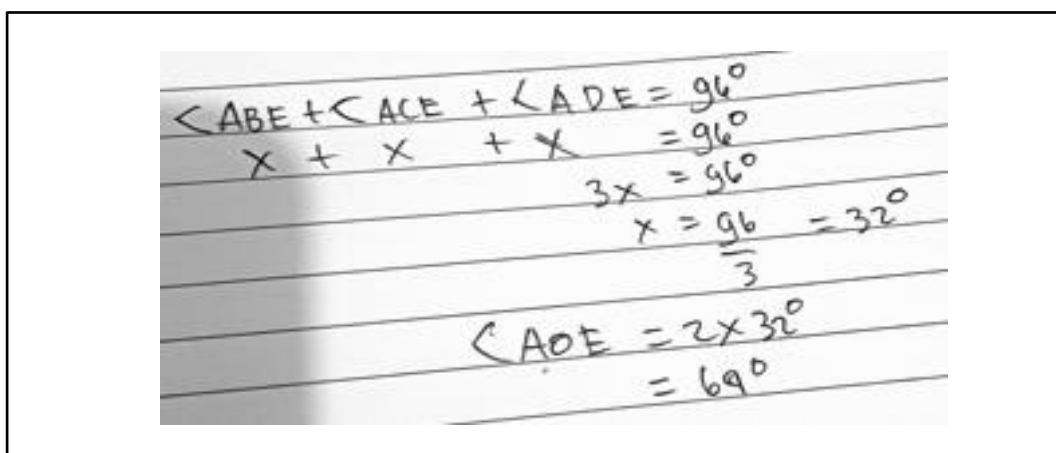 <ABE + <ACE + <ADE = 96°
x + x + x = 96°
3x = 96°
x = 96/3 = 32°
<AOE = 2 × 32°
= 64°